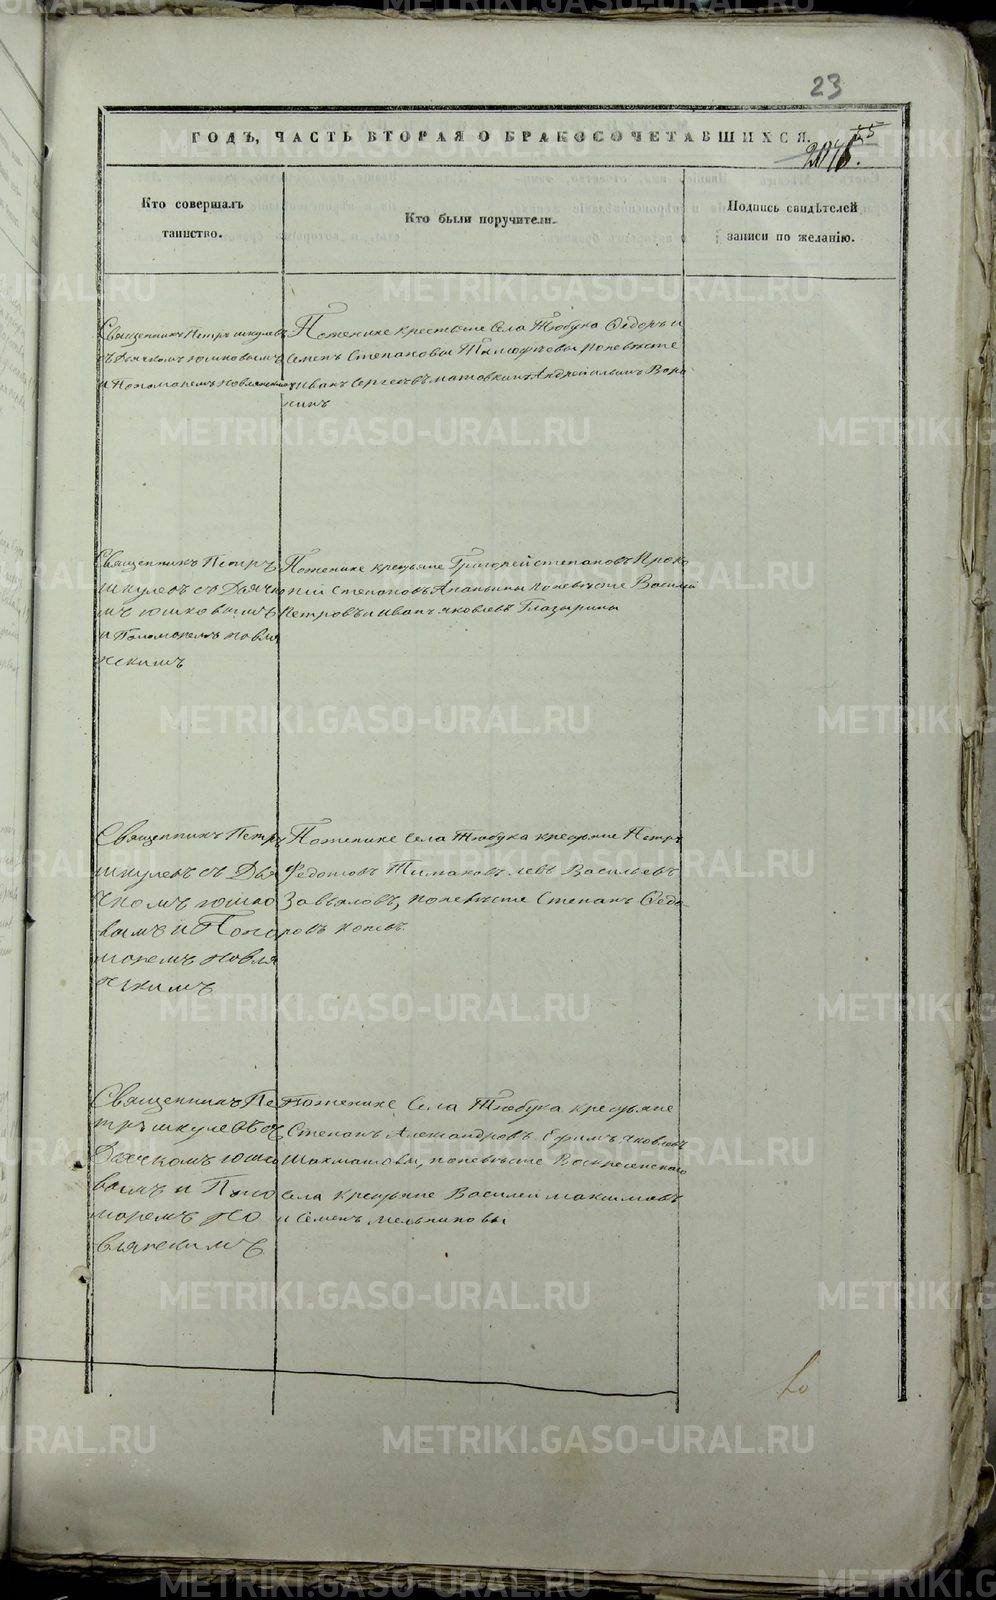 23
ГОДЪ, ЧАСТЬ ВТОРАЯ О БРАКОСОЧЕТАВШИХСЯ.
Кто совершалъ
таинство.
Кто были поручители.
Подпись свидѣтелей
записи по желанію.
Священникъ Петръ шкулевъ
съ Дьячкомъ юшковымъ
и Пономаремъ новлянскимъ
Поженихе крестьяне Села Тюбука Ѳедоръ и
Семенъ Степановы поневѣсте
Иванъ Сергеевъ матовкинъ Андрей ильинъ Воро
нинъ
Священникъ Петръ
шкулевъ съ Дьячко
мъ юшковымъ
и Пономаремъ новля
нскимъ
Поженихе крестьяне Григорей степановъ Проко
пій Степановъ Ананьины поневѣсте Василей
Петровъ и Иванъ яковлевъ Глазырины
Священникъ Петръ
шкулевъ съ Дья
чкомъ юшко
вымъ и Поно
маремъ новля
нскимъ
Поженихе Села Тюбука крестьяне Петръ
Федотовъ Тимаковъ левъ Васильевъ
Завьяловъ, поневѣсте Степанъ Ѳедо
ровъ копевъ
Священникъ Пе
тръ шкулевъ съ
Дьячкомъ юшко
вымъ и Поно
маремъ но
влянскимъ
Поженихе Села Тюбука крестьяне
Степанъ Александровъ Ефимъ яковлевъ
Шахматовы, поневѣсте Воскресенскаго
Села крестьяне Василей максимовъ
и Семенъ мельниковы
METRIKI.GASO-URAL.RU